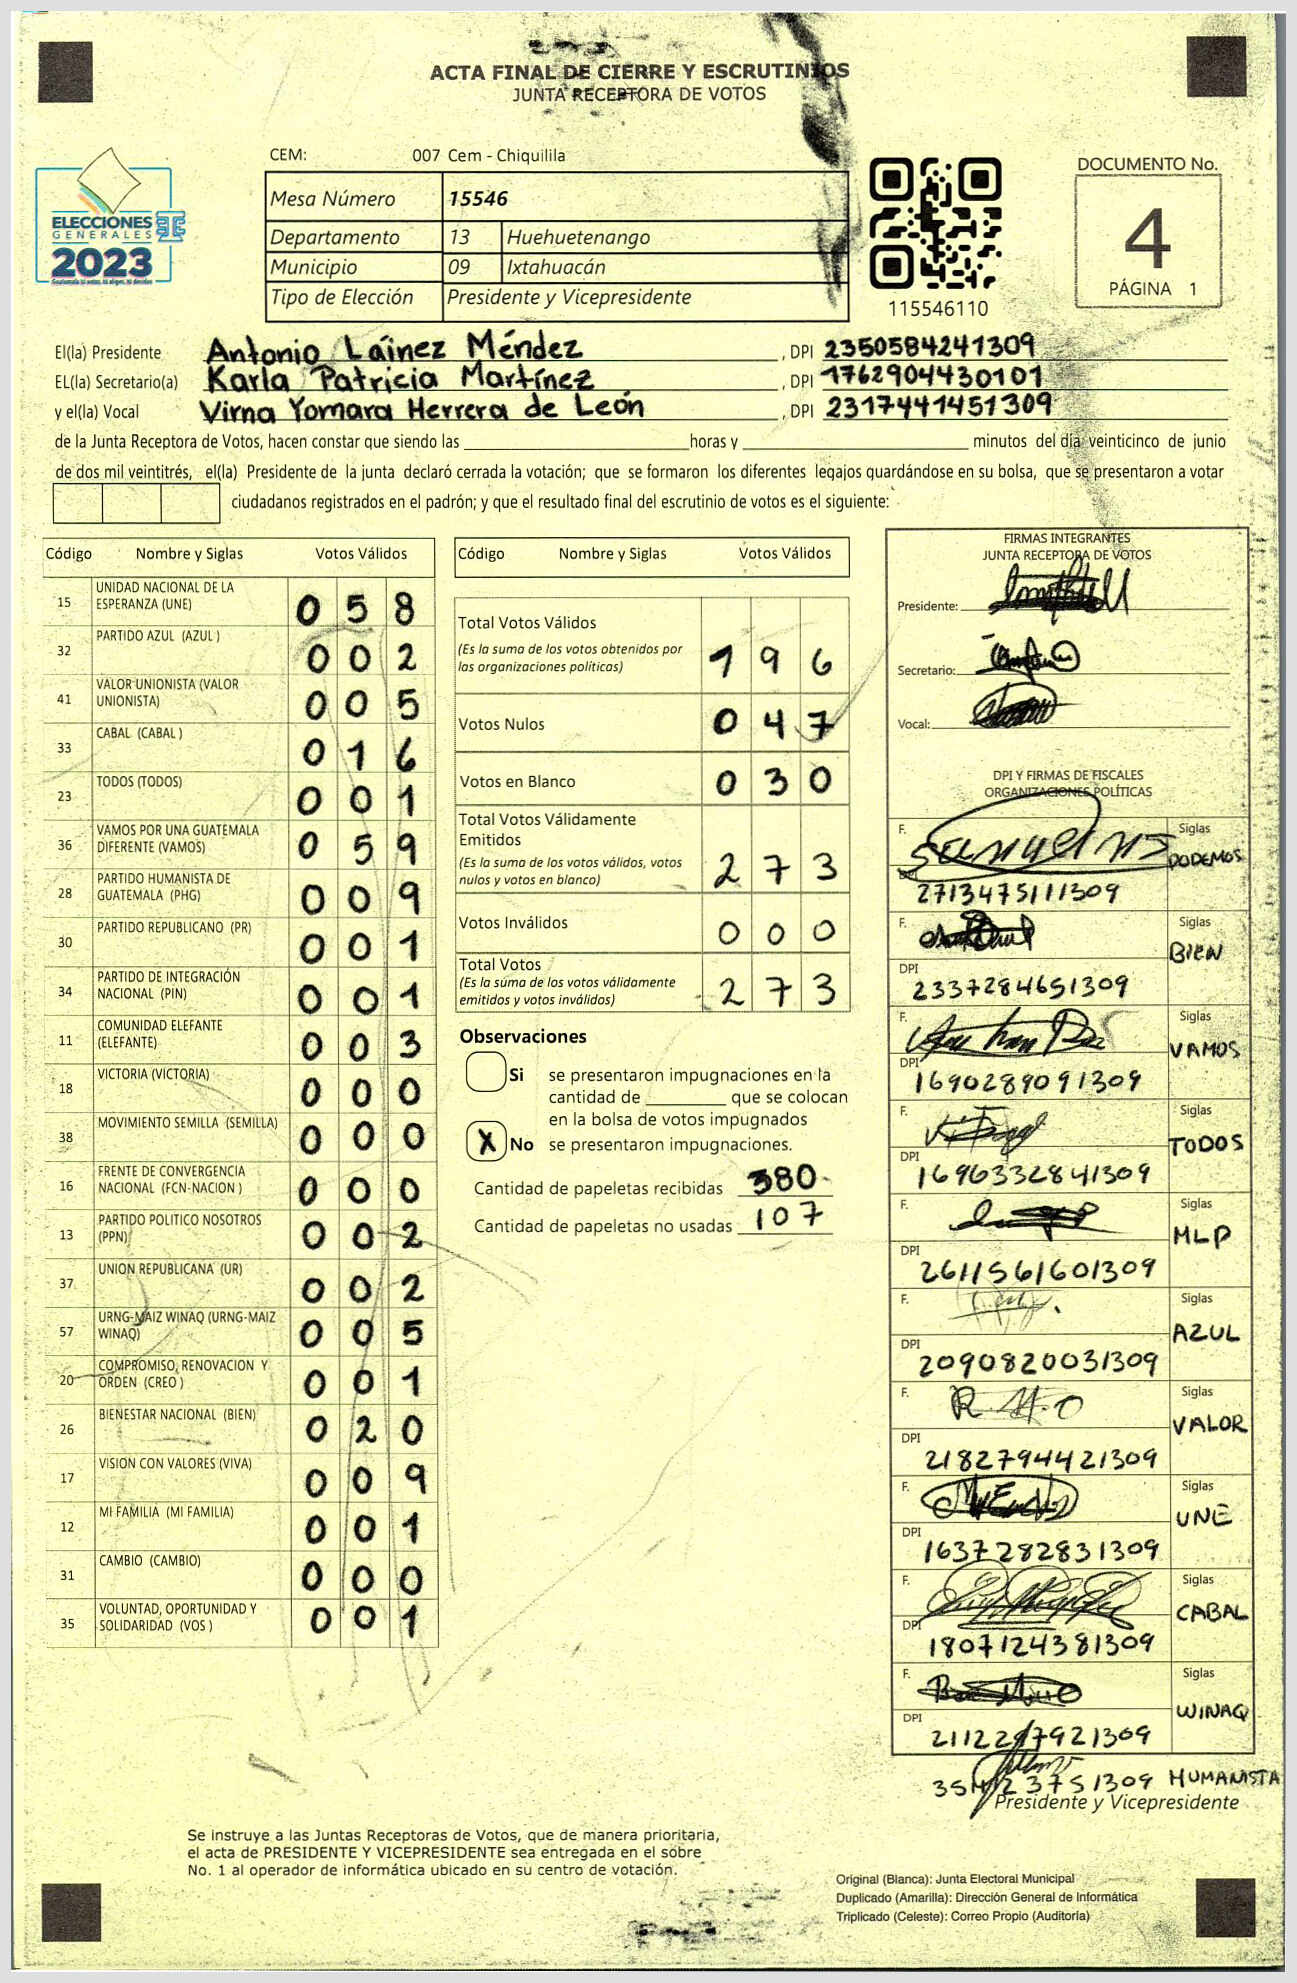 ACTA FINAL DE CIERRE Y ESCRUTINIOS
JUNTA RECEPTORA DE VOTOS
CEM: 007 Cem - Chiquilila
ELECCIONES
GENERALES
2023
Mesa Número 15546
Departamento 13 Huehuetenango
Municipio 09 Ixtahuacán
Tipo de Elección Presidente y Vicepresidente
115546110
DOCUMENTO No.
4
PÁGINA 1
El(la) Presidente Antonio Laínez Méndez , DPI 2350584241309
EL(la) Secretario(a) Karla Patricia Martínez , DPI 1762904430101
y el(la) Vocal Virna Yomara Herrera de León , DPI 2317441451309
de la Junta Receptora de Votos, hacen constar que siendo las horas y minutos del día veinticinco de junio
de dos mil veintitrés, el(la) Presidente de la junta declaró cerrada la votación; que se formaron los diferentes legajos guardándose en su bolsa, que se presentaron a votar
ciudadanos registrados en el padrón; y que el resultado final del escrutinio de votos es el siguiente:
Código Nombre y Siglas Votos Válidos
15 UNIDAD NACIONAL DE LA ESPERANZA (UNE) 058
32 PARTIDO AZUL (AZUL ) 002
41 VALOR UNIONISTA (VALOR UNIONISTA) 005
33 CABAL (CABAL ) 016
23 TODOS (TODOS) 001
36 VAMOS POR UNA GUATEMALA DIFERENTE (VAMOS) 059
28 PARTIDO HUMANISTA DE GUATEMALA (PHG) 009
30 PARTIDO REPUBLICANO (PR) 001
34 PARTIDO DE INTEGRACIÓN NACIONAL (PIN) 001
11 COMUNIDAD ELEFANTE (ELEFANTE) 003
18 VICTORIA (VICTORIA) 000
38 MOVIMIENTO SEMILLA (SEMILLA) 000
16 FRENTE DE CONVERGENCIA NACIONAL (FCN-NACION ) 000
13 PARTIDO POLITICO NOSOTROS (PPN) 002
37 UNION REPUBLICANA (UR) 002
57 URNG-MAIZ WINAQ (URNG-MAIZ WINAQ) 005
20 COMPROMISO, RENOVACION Y ORDEN (CREO ) 001
26 BIENESTAR NACIONAL (BIEN) 020
17 VISION CON VALORES (VIVA) 009
12 MI FAMILIA (MI FAMILIA) 001
31 CAMBIO (CAMBIO) 000
35 VOLUNTAD, OPORTUNIDAD Y SOLIDARIDAD (VOS ) 001
Código Nombre y Siglas Votos Válidos
Total Votos Válidos 196
(Es la suma de los votos obtenidos por
las organizaciones políticas)
Votos Nulos 047
Votos en Blanco 030
Total Votos Válidamente
Emitidos 273
(Es la suma de los votos válidos, votos
nulos y votos en blanco)
Votos Inválidos 000
Total Votos 273
(Es la suma de los votos válidamente
emitidos y votos inválidos)
Observaciones
Si se presentaron impugnaciones en la
cantidad de que se colocan
en la bolsa de votos impugnados
X No se presentaron impugnaciones.
Cantidad de papeletas recibidas 380
Cantidad de papeletas no usadas 107
FIRMAS INTEGRANTES
JUNTA RECEPTORA DE VOTOS
Presidente:
Secretario:
Vocal:
DPI Y FIRMAS DE FISCALES
ORGANIZACIONES POLÍTICAS
F. Siglas PODEMOS
DPI 2713475111309
F. Siglas BIEN
DPI 2337284651309
F. Siglas VAMOS
DPI 1690289091309
F. Siglas TODOS
DPI 1696332841309
F. Siglas MLP
DPI 2611561601309
F. Siglas AZUL
DPI 2090820031309
F. Siglas VALOR
DPI 2182794421309
F. Siglas UNE
DPI 1637282831309
F. Siglas CABAL
DPI 1807124381309
F. Siglas WINAQ
DPI
HUMANISTA
Presidente y Vicepresidente
Se instruye a las Juntas Receptoras de Votos, que de manera prioritaria,
el acta de PRESIDENTE Y VICEPRESIDENTE sea entregada en el sobre
No. 1 al operador de informática ubicado en su centro de votación.
Original (Blanca): Junta Electoral Municipal
Duplicado (Amarilla): Dirección General de Informática
Triplicado (Celeste): Correo Propio (Auditoría)